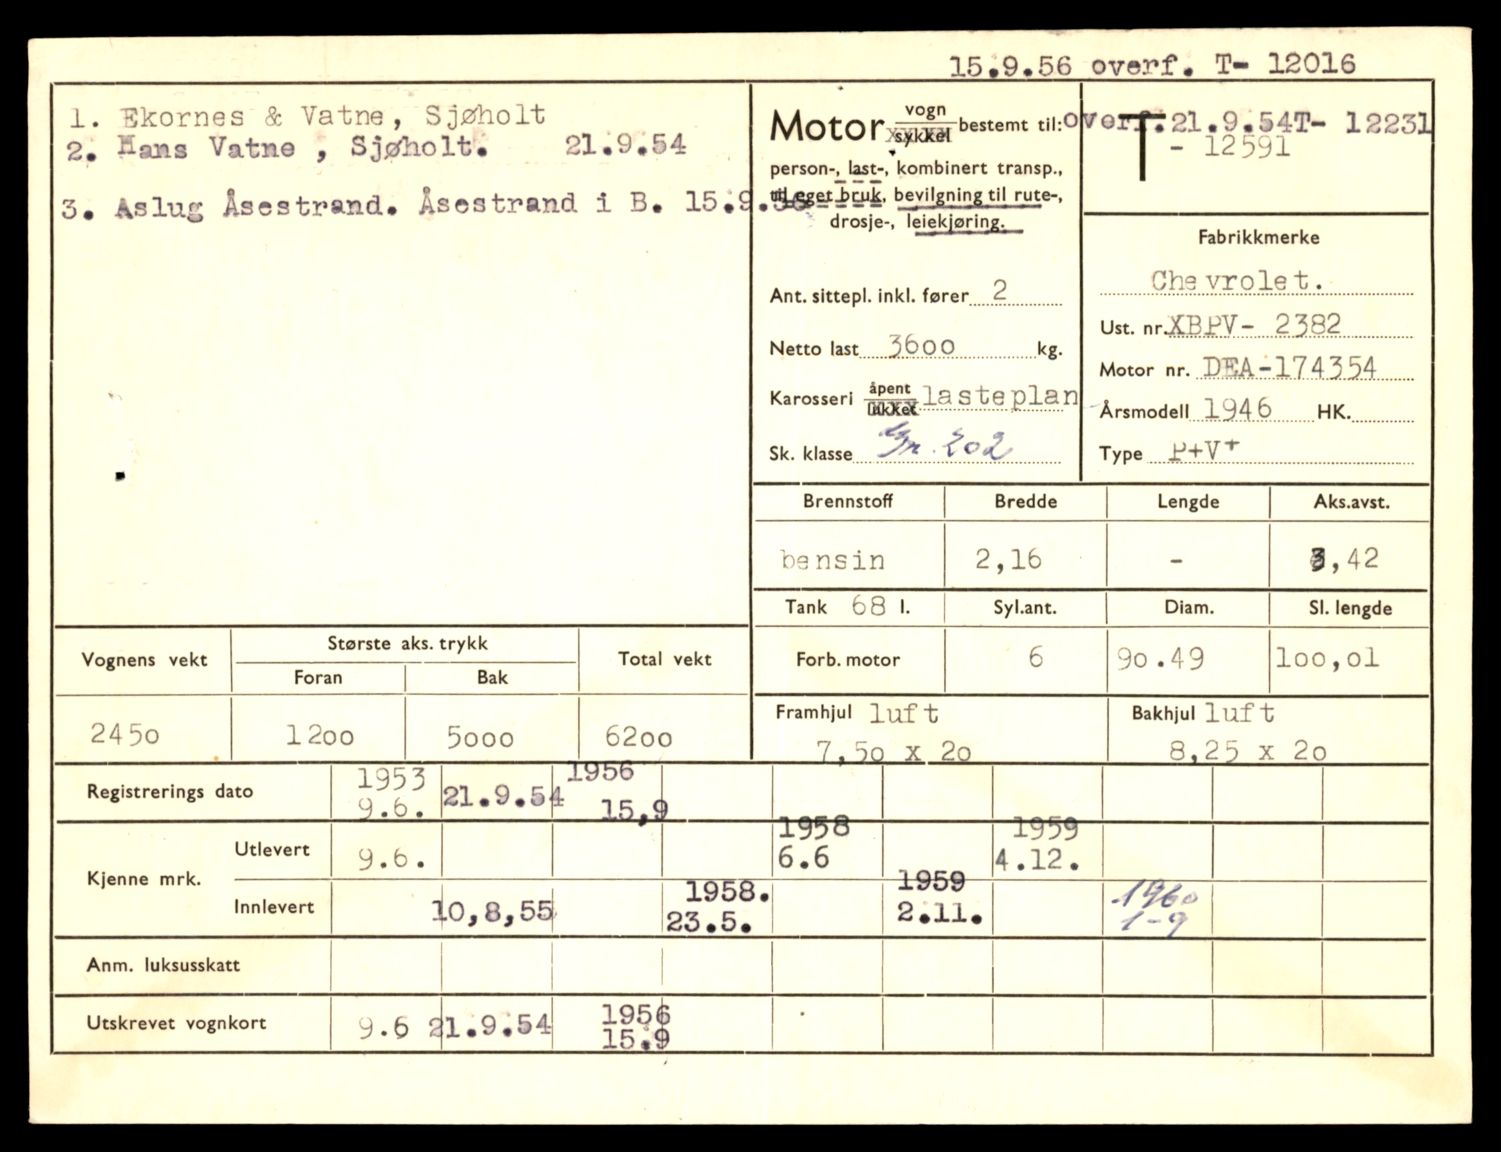 15.9.56 overf. T- 12016
1. Ekornes & Vatne, Sjøholt
2. Hans Vatne , Sjøholt. 21.9.54
3. Aslug Åsestrand. Åsestrand i B. 15.9.56
Motor vogn sykkel bestemt til:
person-, last-, kombinert transp.,
til eget bruk, bevilgning til rute-,
drosje-, leiekjøring.
Ant. sittepl. inkl. fører 2
Netto last 3600 kg.
Karosseri åpent lukket lasteplan
Sk. klasse Gr. 202
overf. 21.9.54T- 12231
T - 12591
Fabrikkmerke
Chevrolet.
Ust. nr. XBPV- 2382
Motor nr. DEA-174354
Årsmodell 1946 HK.
Type P+V+
Brennstoff Bredde Lengde Aks.avst.
bensin 2,16 - 3,42
Tank 68 l. Syl.ant. Diam. Sl. lengde
Forb. motor 6 90.49 100,01
Framhjul luft Bakhjul luft
7,50 x 20 8,25 x 20
Vognens vekt Største aks. trykk Total vekt
Foran Bak
2450 1200 5000 6200
Registrerings dato 1953 9.6. 21.9.54 1956 15,9
Kjenne mrk.
Utlevert 9.6. 1958 6.6 1959 4.12.
Innlevert 10,8,55 1958. 23.5. 1959 2.11. 1960 1-9
Anm. luksusskatt
Utskrevet vognkort 9.6 21.9.54 1956 15.9